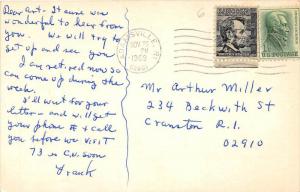 Dear Art - It sure was
wonderful to hear from
you. We will try to
get up and see you
I am retired now so
can come up during the
week.
I'll wait for your
letter - and will get
your phone # & call
you before we visit
73 is C.U. soon
Frank
NOV
1968
Mr Arthur Miller
234 Beckwith St
Cranston R.I.
02910
U.S. POSTAGE